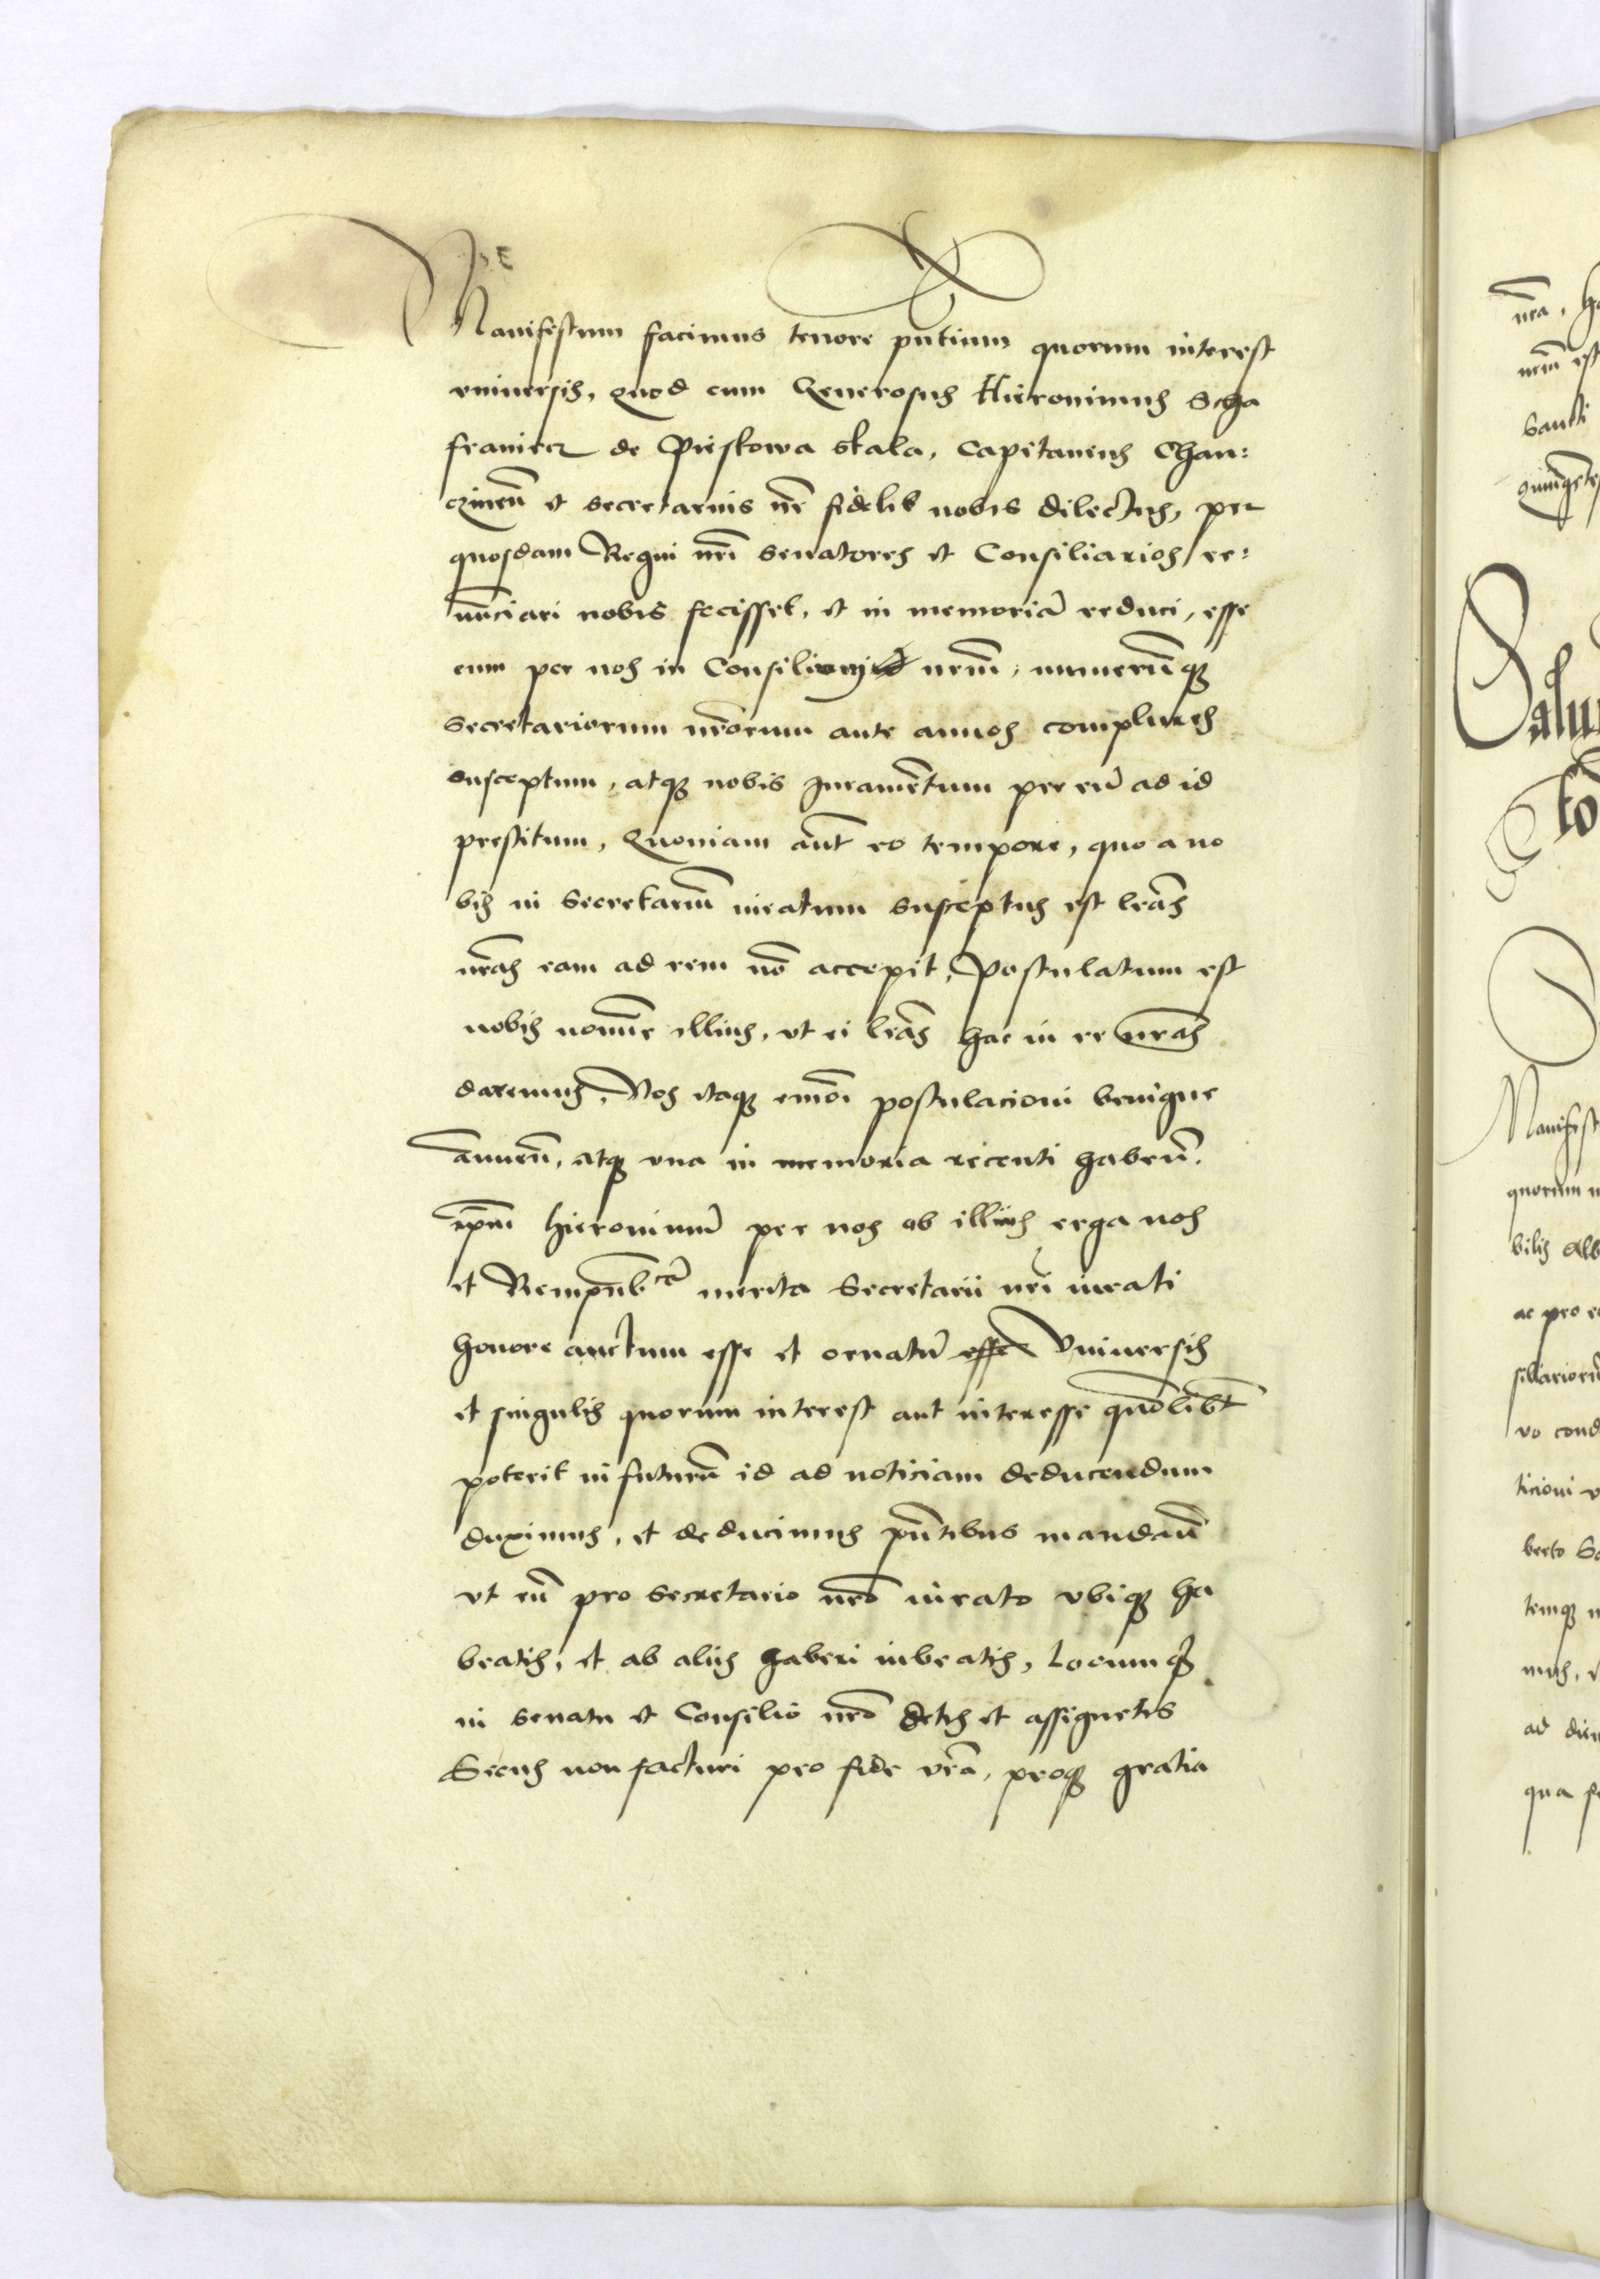 Manifestum facimus tenore pn̄tium quorum interest
vniversis, Quod cum Generosus Hieronimus Scha
franiecz de Pieskowa skala, Capitaneus Chan:
czinen̄ et secretarius nr̄ fidelis nobis dilectus, per
quosdam Regni nr̄i Senatores et Consiliarios re:
nūnciari nobis fecisset, et in memoriā reduci, esse
eum per nos in nr̄m, numerūq3
Secretariorum nr̄orum ante annos complures
susceptum, atq3 nobis Juramēntum per eū ad id
prestitum, Quoniam aūt eo tempore, quo a no
bis in Secretariū iuratum susceptus est lrās
nrās eam ad rem nō accepit, Postulatum est
nobis nomīne illius, vt ei lrās hac in re nrās
daremus, Nos itaq3 postulacioni benigne
annuen̄, atq3 vna in memoria recenti haben̄.
ipm̄ Hieronimū per nos ob illius erga nos
et Rempūbcā merita Secretarii nr̄i iurati
honore auctum esse et ornatū esse Vniversis
et singulis quorum interest aut interesse quōlibt
poterit in futurū id ad noticiam deducendum
duximus, et deducimus pn̄tibus mandan̄
vt eū pro Secretario nrō iurato vbiq3 ha
beatis, et ab aliis haberi iubeatis, Locumq3
in Senatu et Consilio nrō detis et assignetis
Secus non facturi pro fide vrā, proq3 gratia
nrā,
Manifest
quorum
bilis
ac pro
vo cond
ticioni
berto
temq3
mus,
ad
qua